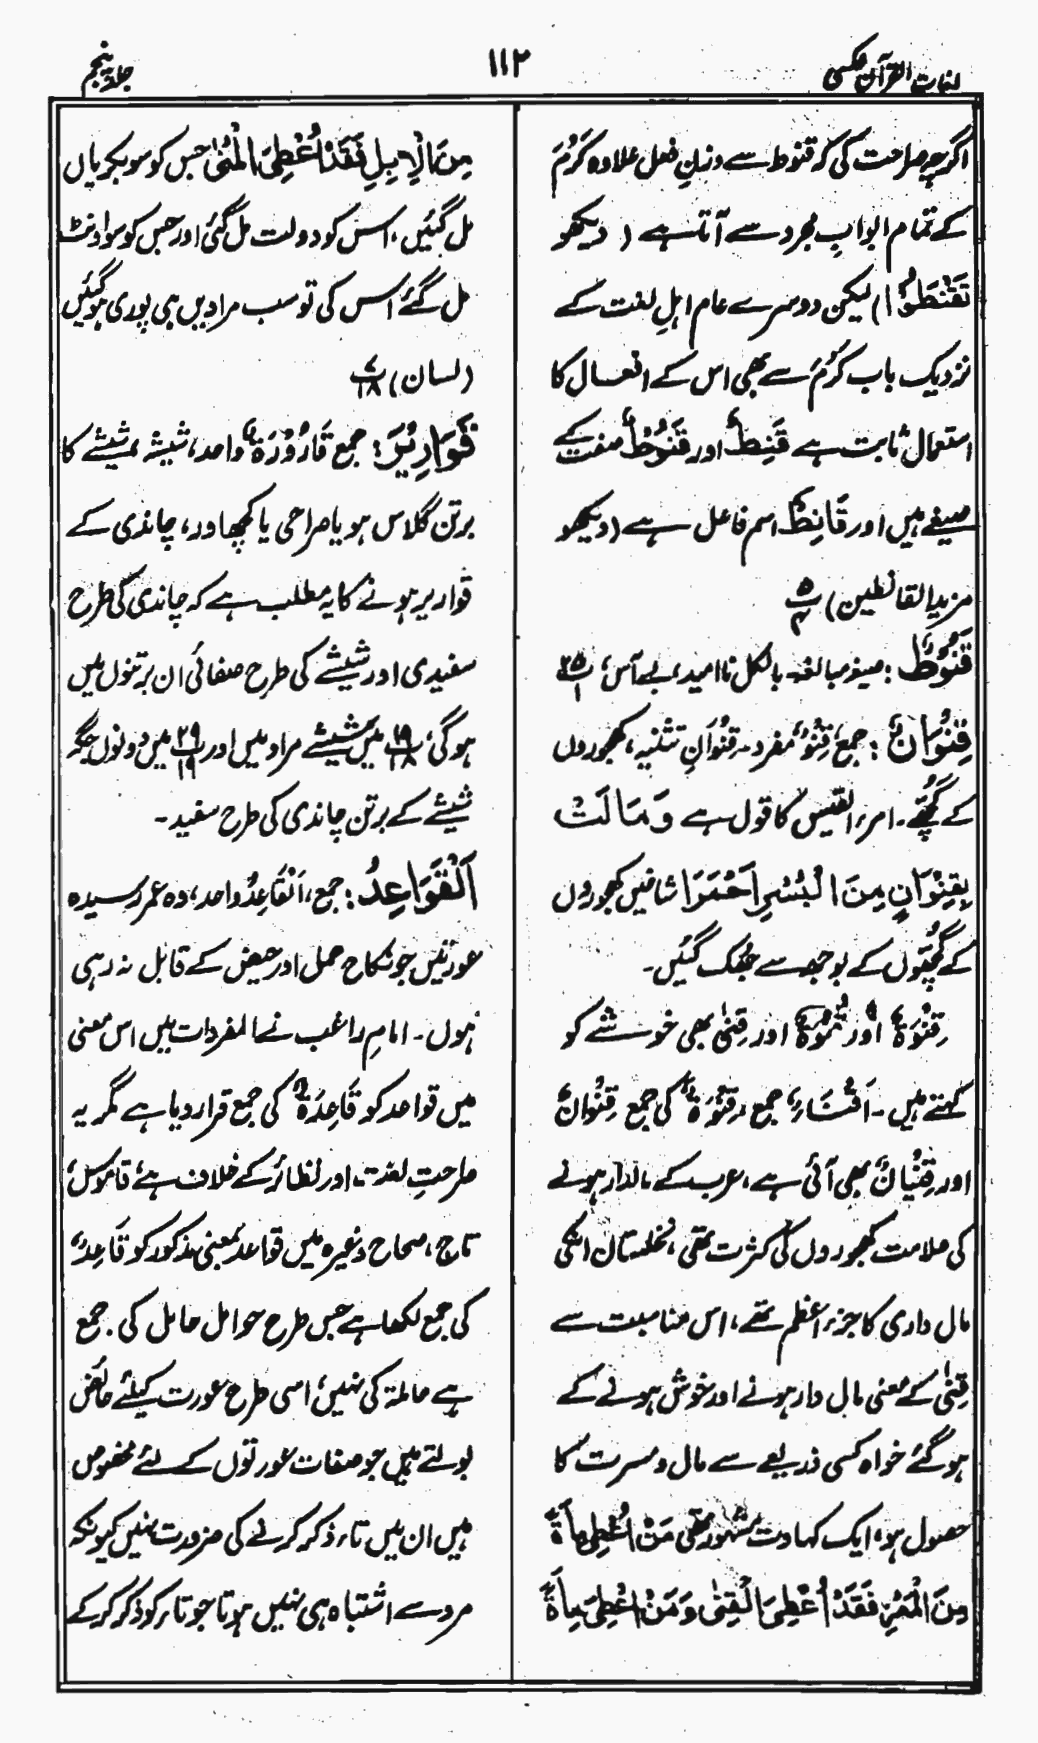 لغات القرآن عکسی
۱۱۲
جلد پنجم
اگرچہ صراحت کی کہ قنوط سے وزنِ فعل علاوہ کَرُمَ
کے تمام ابوابِ مجرد سے آتا ہے ( دیکھو
تَقْنَطُوْا) لیکن دوسرے عام اہلِ لغت کے
نزدیک باب کَرُمَ سے بھی اس کے افعال کا
استعمال ثابت ہے قَنِطٌ اور قَنُوْطٌ صفت کے
صیغے ہیں اور قَانِطٌ اسم فاعل ہے (دیکھو
مزید القانطین)
قَنُوْطٌ : صیغہ مبالغہ۔ بالکل نا امید، بے آس، ۲۵/۱
قِنْوَانٌ : جمع، قِنْوٌ مفرد۔ قِنْوَانِ تثنیہ، کھجوروں
کے گچھے۔ امرء القیس کا قول ہے وَمَالَتْ
بِقِنْوَانٍ مِنَ الْبُسْرِ اَحْمَرَا شاخیں کھجوروں
کے گچھوں کے بوجھ سے جھک گئیں۔
قِنْوَۃٌ اور قُنْوَۃٌ اور قِنیٰ بھی خوشے کو
کہتے ہیں۔ اَقْنَاءٌ جمع، قِنْوَۃٌ کی جمع قِنْوَانٌ
اور قِنْیَانٌ بھی آئی ہے، عرب کے مالدار ہونے
کی علامت کھجوروں کی کثرت تھی، نخلستان انکی
مال داری کا جزءِ اعظم تھے، اس مناسبت سے
قِنیٰ کے معنی مال دار ہونے اور خوش ہونے کے
ہو گئے خواہ کسی ذریعے سے مال و مسرت کا
حصول ہو، ایک کہاوت مشہور تھی مَنْ اُعْطِیَ مِأَۃً
مِنَ الْمَعْزِ فَقَدْ اُعْطِیَ الْقِنیٰ وَمَنْ اُعْطِیَ مِأَۃً
مِنَ الْاِبِلِ فَقَدْ اُعْطِیَ الْمُنیٰ جس کو سو بکریاں
مل گئیں، اس کو دولت مل گئی اور جس کو سو اونٹ
مل گئے اس کی تو سب مرادیں ہی پوری ہو گئیں
(لسان)
قَوَارِیْرَ: جمع قَارُوْرَۃٌ واحد، شیشہ، شیشے کا
برتن گلاس ہو یا صراحی یا کچھ اور، چاندی کے
قواریر ہونے کا یہ مطلب ہے کہ چاندی کی طرح
سفیدی اور شیشے کی طرح صفائی ان برتنوں میں
ہوگی، ۱۹/۱۸ میں شیشے مراد ہیں اور ۲۹/۱۹ میں دونوں جگہ
شیشے کے برتن چاندی کی طرح سفید۔
اَلْقَوَاعِدُ : جمع، اَلْقَاعِدُ واحد، وہ عمر رسیدہ
عورتیں جو نکاح حمل اور حیض کے قابل نہ رہی
ہوں۔ امام راغب نے المفردات میں اس معنی
میں قواعد کو قَاعِدَۃٌ کی جمع قرار دیا ہے مگر یہ
صراحتِ لغت اور نظائر کے خلاف ہے، قاموس،
تاج، صحاح وغیرہ میں قواعد بمعنی مذکور کو قَاعِدٌ،
کی جمع لکھا ہے جس طرح حوامل حامل کی جمع
ہے حاملۃ کی نہیں، اسی طرح عورت کیلئے حائض
بولتے ہیں جو صفات عورتوں کے لئے مخصوص
ہیں ان میں تاء ذکر کرنے کی ضرورت نہیں کیونکہ
مرد سے اشتباہ ہی نہیں ہوتا جو تاء کو ذکر کر کے